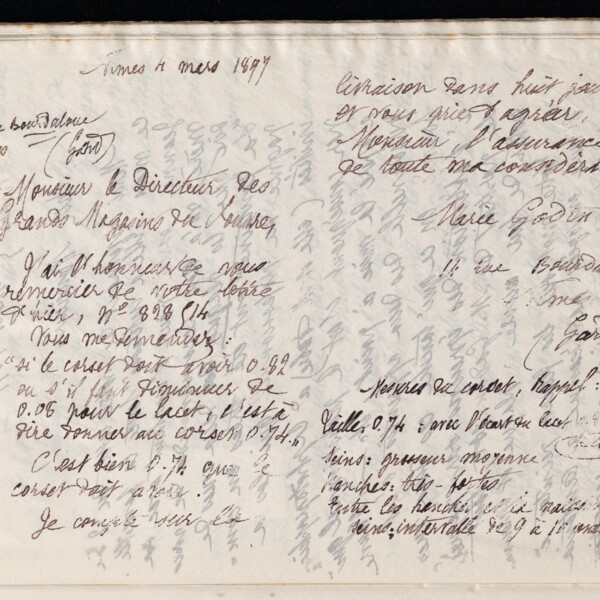 Nimes 4 mars 1897
Bourdaloue
(Gard)
Monsieur le Directeur des
Grands Magasins du Louvre,
J'ai l'honneur de vous
remercier de votre lettre
d'hier, Nº 828514
Vous me demandez :
"si le corset doit avoir 0.82
ou s'il faut diminuer de
0.08 pour le lacet, c'est à
dire donner au corset 0.74„
C'est bien 0.74 que le
corset doit avoir.
Je compte sur la
livraison dans huit jou
et vous prie d'agréer,
Monsieur, l'assurance
de toute ma considéra
Marie Godin
rue Bourda
Nimes
Gar
Mesures du corset, rappel :
Taille, 0.74 : avec l'écart du lacet
Seins : grosseur moyenne
Hanches : très-fortes
Entre les hanches et la naiss
seins : intervalle de 9 à